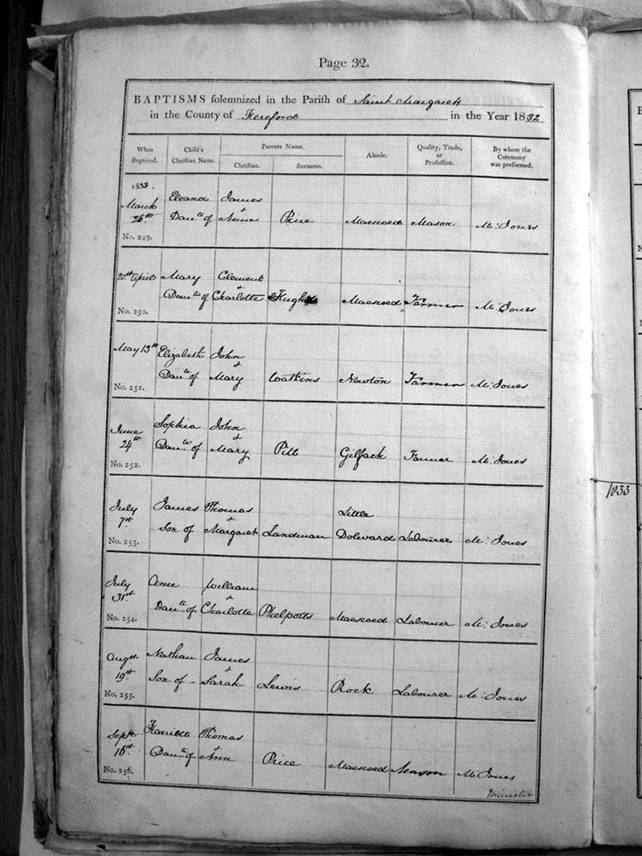 Page 32.
BAPTISMS solemnized in the Parish of Saint Margarets
in the County of Hereford in the Year 1832
When Baptized. Child's Christian Name. Parents Name. Abode. Quality, Trade, or Profession. By whom the Ceremony was performed.
Christian. Surname.
1833.
March 24th Eleanor Daur. of James & Anne Price Maescoed Mason Mr. Jones
No. 249.
20th April Mary Daur. of Clement & Charlotte Hughes Maescoed Farmer Mr. Jones
No. 250.
May 13th Elizabeth Daur. of John & Mary Watkins Newton Farmer Mr. Jones
No. 251.
June 24th Sophia Daur. of John & Mary Pitt Gilfach Farmer Mr. Jones
No. 252.
July 7st James Son of Thomas & Margaret Landman Little Dolward Labourer Mr. Jones
No. 253.
July 31st Ann Daur. of William & Charlotte Phelpotts Maescoed Labourer Mr. Jones
No. 254.
Augst 19st Nathan Son of James & Sarah Lewis Rock Labourer Mr. Jones
No. 255.
Septr 16st Harriett Daur. of Thomas & Ann Price Maescoed Mason Mr Jones
No. 256.
Minister
1033